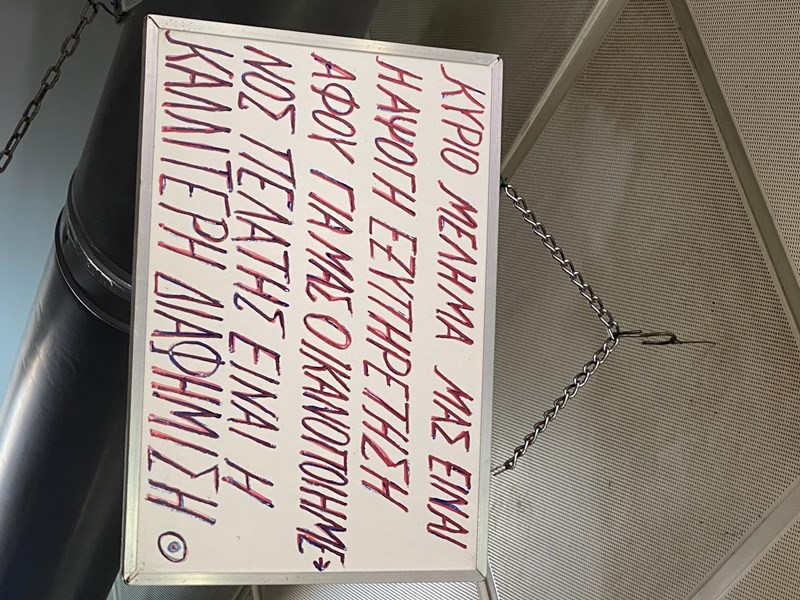 ΚΥΡΙΟ ΜΕΛΗΜΑ ΜΑΣ ΕΙΝΑΙ
Η ΑΨΟΓΗ ΕΞΥΠΗΡΕΤΗΣΗ
ΑΦΟΥ ΓΙΑ ΜΑΣ Ο ΙΚΑΝΟΠΟΙΗΜΕ*
ΝΟΣ ΠΕΛΑΤΗΣ ΕΙΝΑΙ Η
ΚΑΛΛΙΤΕΡΗ ΔΙΑΦΗΜΙΣΗ